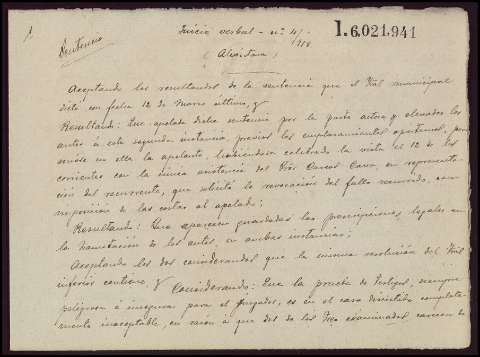 Sentencia
Juicio verbal - nº 4/
1.6.021,941
(Alcántara)
Aceptando los resultandos de la sentencia que el Tral municipal
dictó con fecha 12 de Marzo último, y
Resultando: Que apelada dicha sentencia por la parte actora y elevados los
autos á esta segunda instancia, previos los emplazamientos oportunos, 
en ella la apelante, habiéndose celebrado la vista el 12 de los
corrientes con la única asistencia del Cavo, en representa-
ción del recurrente, que solicitó la revocación del fallo recurrido, con
imposición de las costas al apelado;
Resultando: Que aparecen guardadas las prescripciones legales en
la tramitación de los autos, en ambas instancias;
Aceptando los dos considerandos que la misma resolución del Tral
inferior contiene, y Considerando: Que la prueba de testigos, siempre
peligrosa é insegura para el juzgador, es en el caso discutido completa-
mente inaceptable, en razón á que dos de los tres examinados carecen de